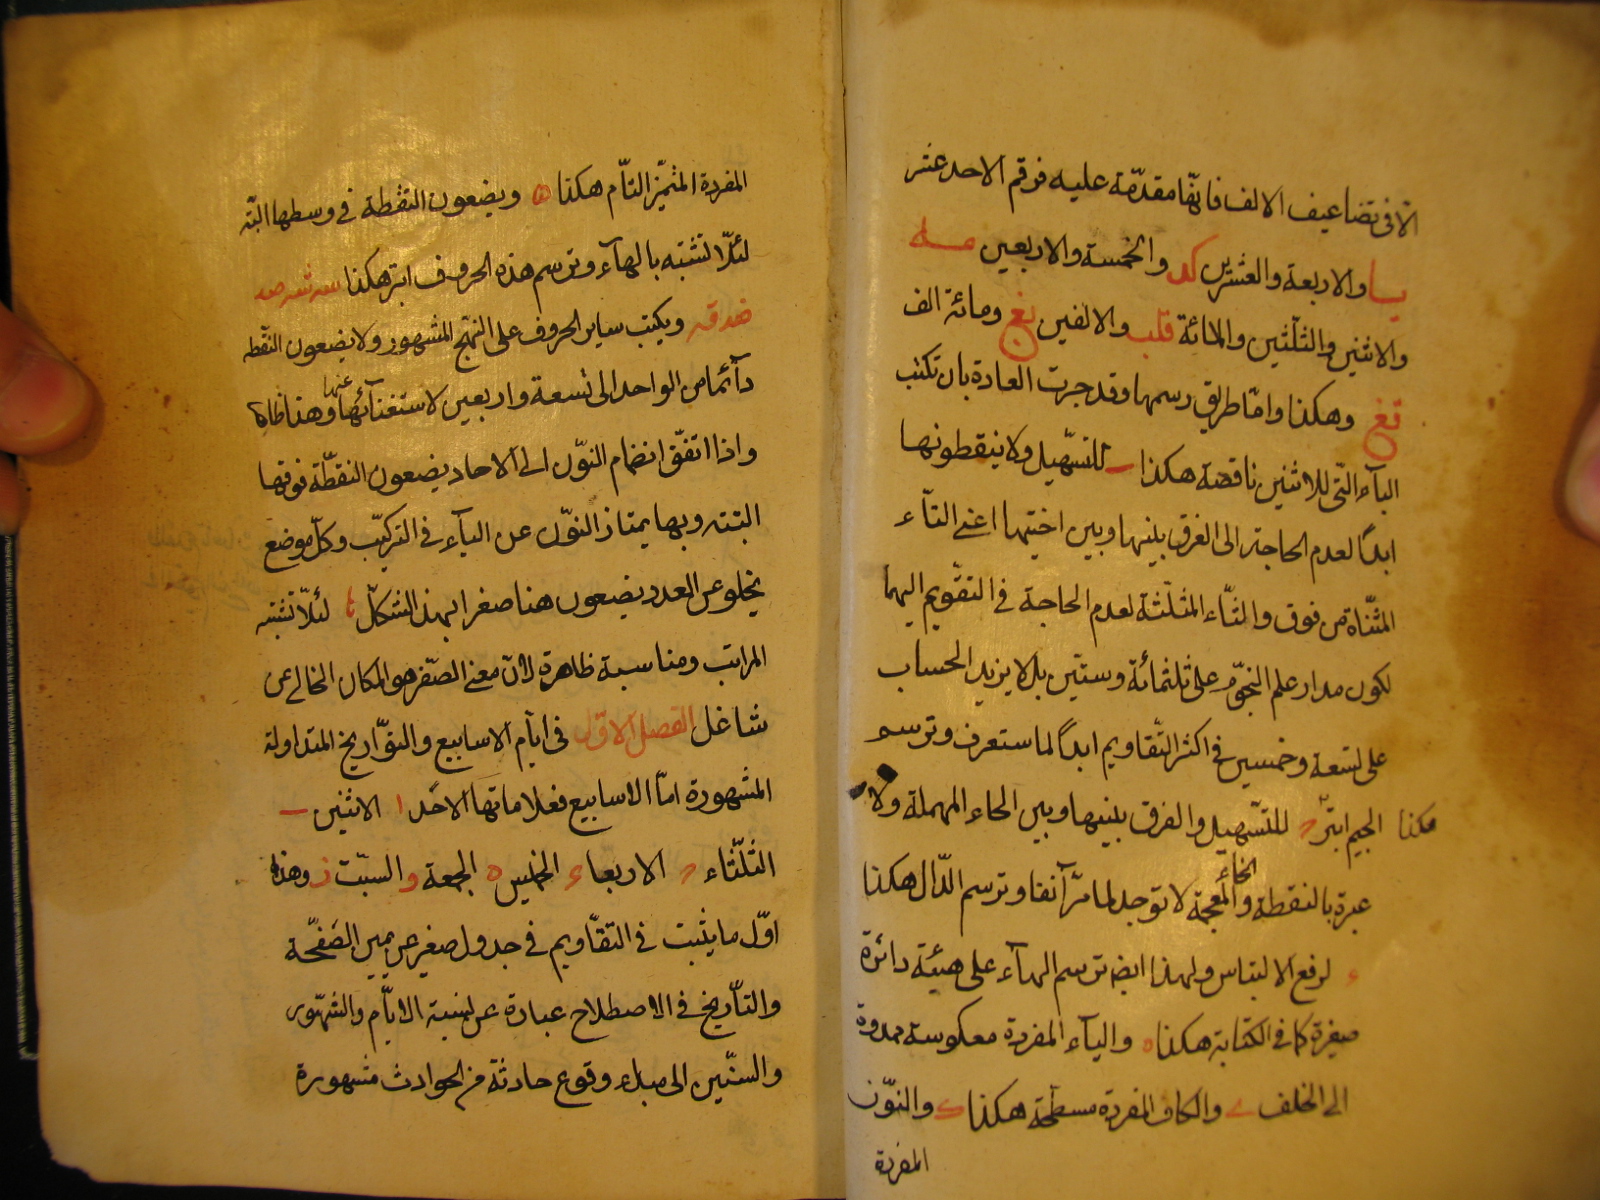 الا فى تضاعيف الالف فانها مقدمة عليه فرقم الاحد عشر
يا والاربعة والعشرين كد والخمسة والاربعين مه
والاثنين والثلثين والمائة قلب والالفين بغ ومائة الف
قغ وهكذا وامّا طريق رسمها وقد جرت العادة بان تكتب
البآء التى للاثنين ناقصة هكذا للتسهيل ولا ينقطونها
ابدًا لعدم الحاجة الى الفرق بينها وبين اختيها اعنى التآء
المثناة من فوق والثّاء المثلثة لعدم الحاجة فى التقويم اليهما
لكون مدار علم النجوم على ثلثمائة وستين بل لا يزيد الحساب
على تسعة وخمسين فى اكثر التقاويم ابدًا لما ستعرف وترسم
الجيم ابتر هكذا للتسهيل والفرق بينها وبين الحاء المهملة ولا
عبرة بالنقطة والخاء المعجمة لا توجد لما مرّ آنفا وترسم الدّال هكذا
ء لرفع الالتباس ولهذا ايضا ترسم الهآء على هيئة دائرة
صغيرة كما فى الكتابة هكذا ه والياء المفردة معكوسة ممدودة
الى الخلف ے والكاف المفردة مسطحة هكذا ك والنوّن
المفردة
المفردة المتميّز التاّم هكذا ن ويضعون النقطة فى وسطها البتّه
لئلّا تشتبه بالهآء وترسم هذه الحروف ابتر هكذا سه شه صه
ضه قه ويكتب ساير الحروف على النهج المشهور ولا يضعون النقطه
دآئما من الواحد الى تسعة واربعين لاستغنآئها عنها وهذا ظاهر
واذا اتفّق انضمام النوّن الى الآحاد يضعون النقطّة فوقها
البتته وبها يمتاز النوّن عن البآء فى التركيّب وكلّ موضع
يخلو عن العدد يضعون هنا صفرا بهذا الشكلّ لئلّا تشتبه
المراتب ومناسبة ظاهرة لانّ معنى الصّفر هو المكان الخالى عن
شاغل الفصل الاوّل فى ايّام الاسابيع والتوّاريخ المتداولة
المشهورة امّا الاسابيع فعلاماتها الاحد ا الاثنين
الثلثاء الاربعاء ء الخميس ه الجمعة و السبّت ز وهذا
اوّل ما يثبت فى التقاّويم فى جدول صغير عن يمين الصفحّة
والتأّريخ فى الاصطلاح عبارة عن نسبة الايّام والشهّور
والسنّين الى مبداء وقوع حادثة من الحوادث مشهورة